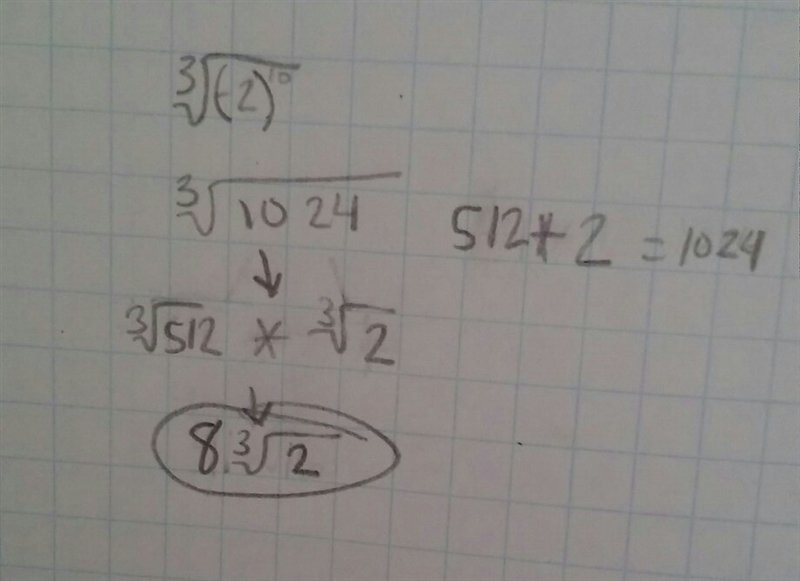 ∛(-2)¹⁰
∛1024 512*2 = 1024
↓
∛512 * ∛2
↓
8∛2